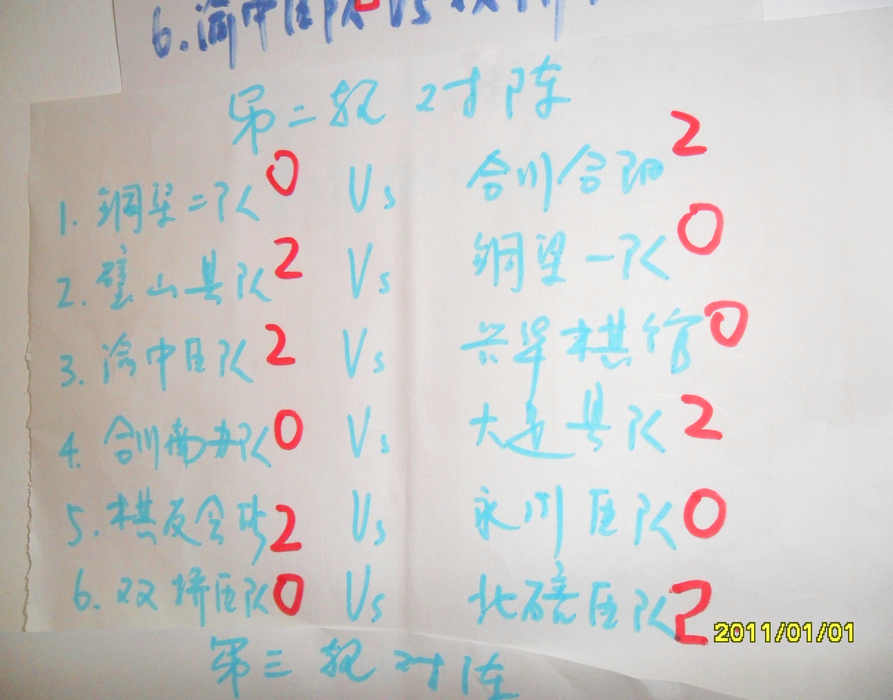 6.渝中区队 Vs
第二轮对阵
1.铜梁二队 0 Vs 合川合阳 2
2.璧山县队 2 Vs 铜梁一队 0
3.渝中区队 2 Vs 兴华棋馆 0
4.合川南办队 0 Vs 大足县队 2
5.棋友会所 2 Vs 永川区队 0
6.双桥区队 0 Vs 北碚区队 2
2011/01/01
第三轮对阵